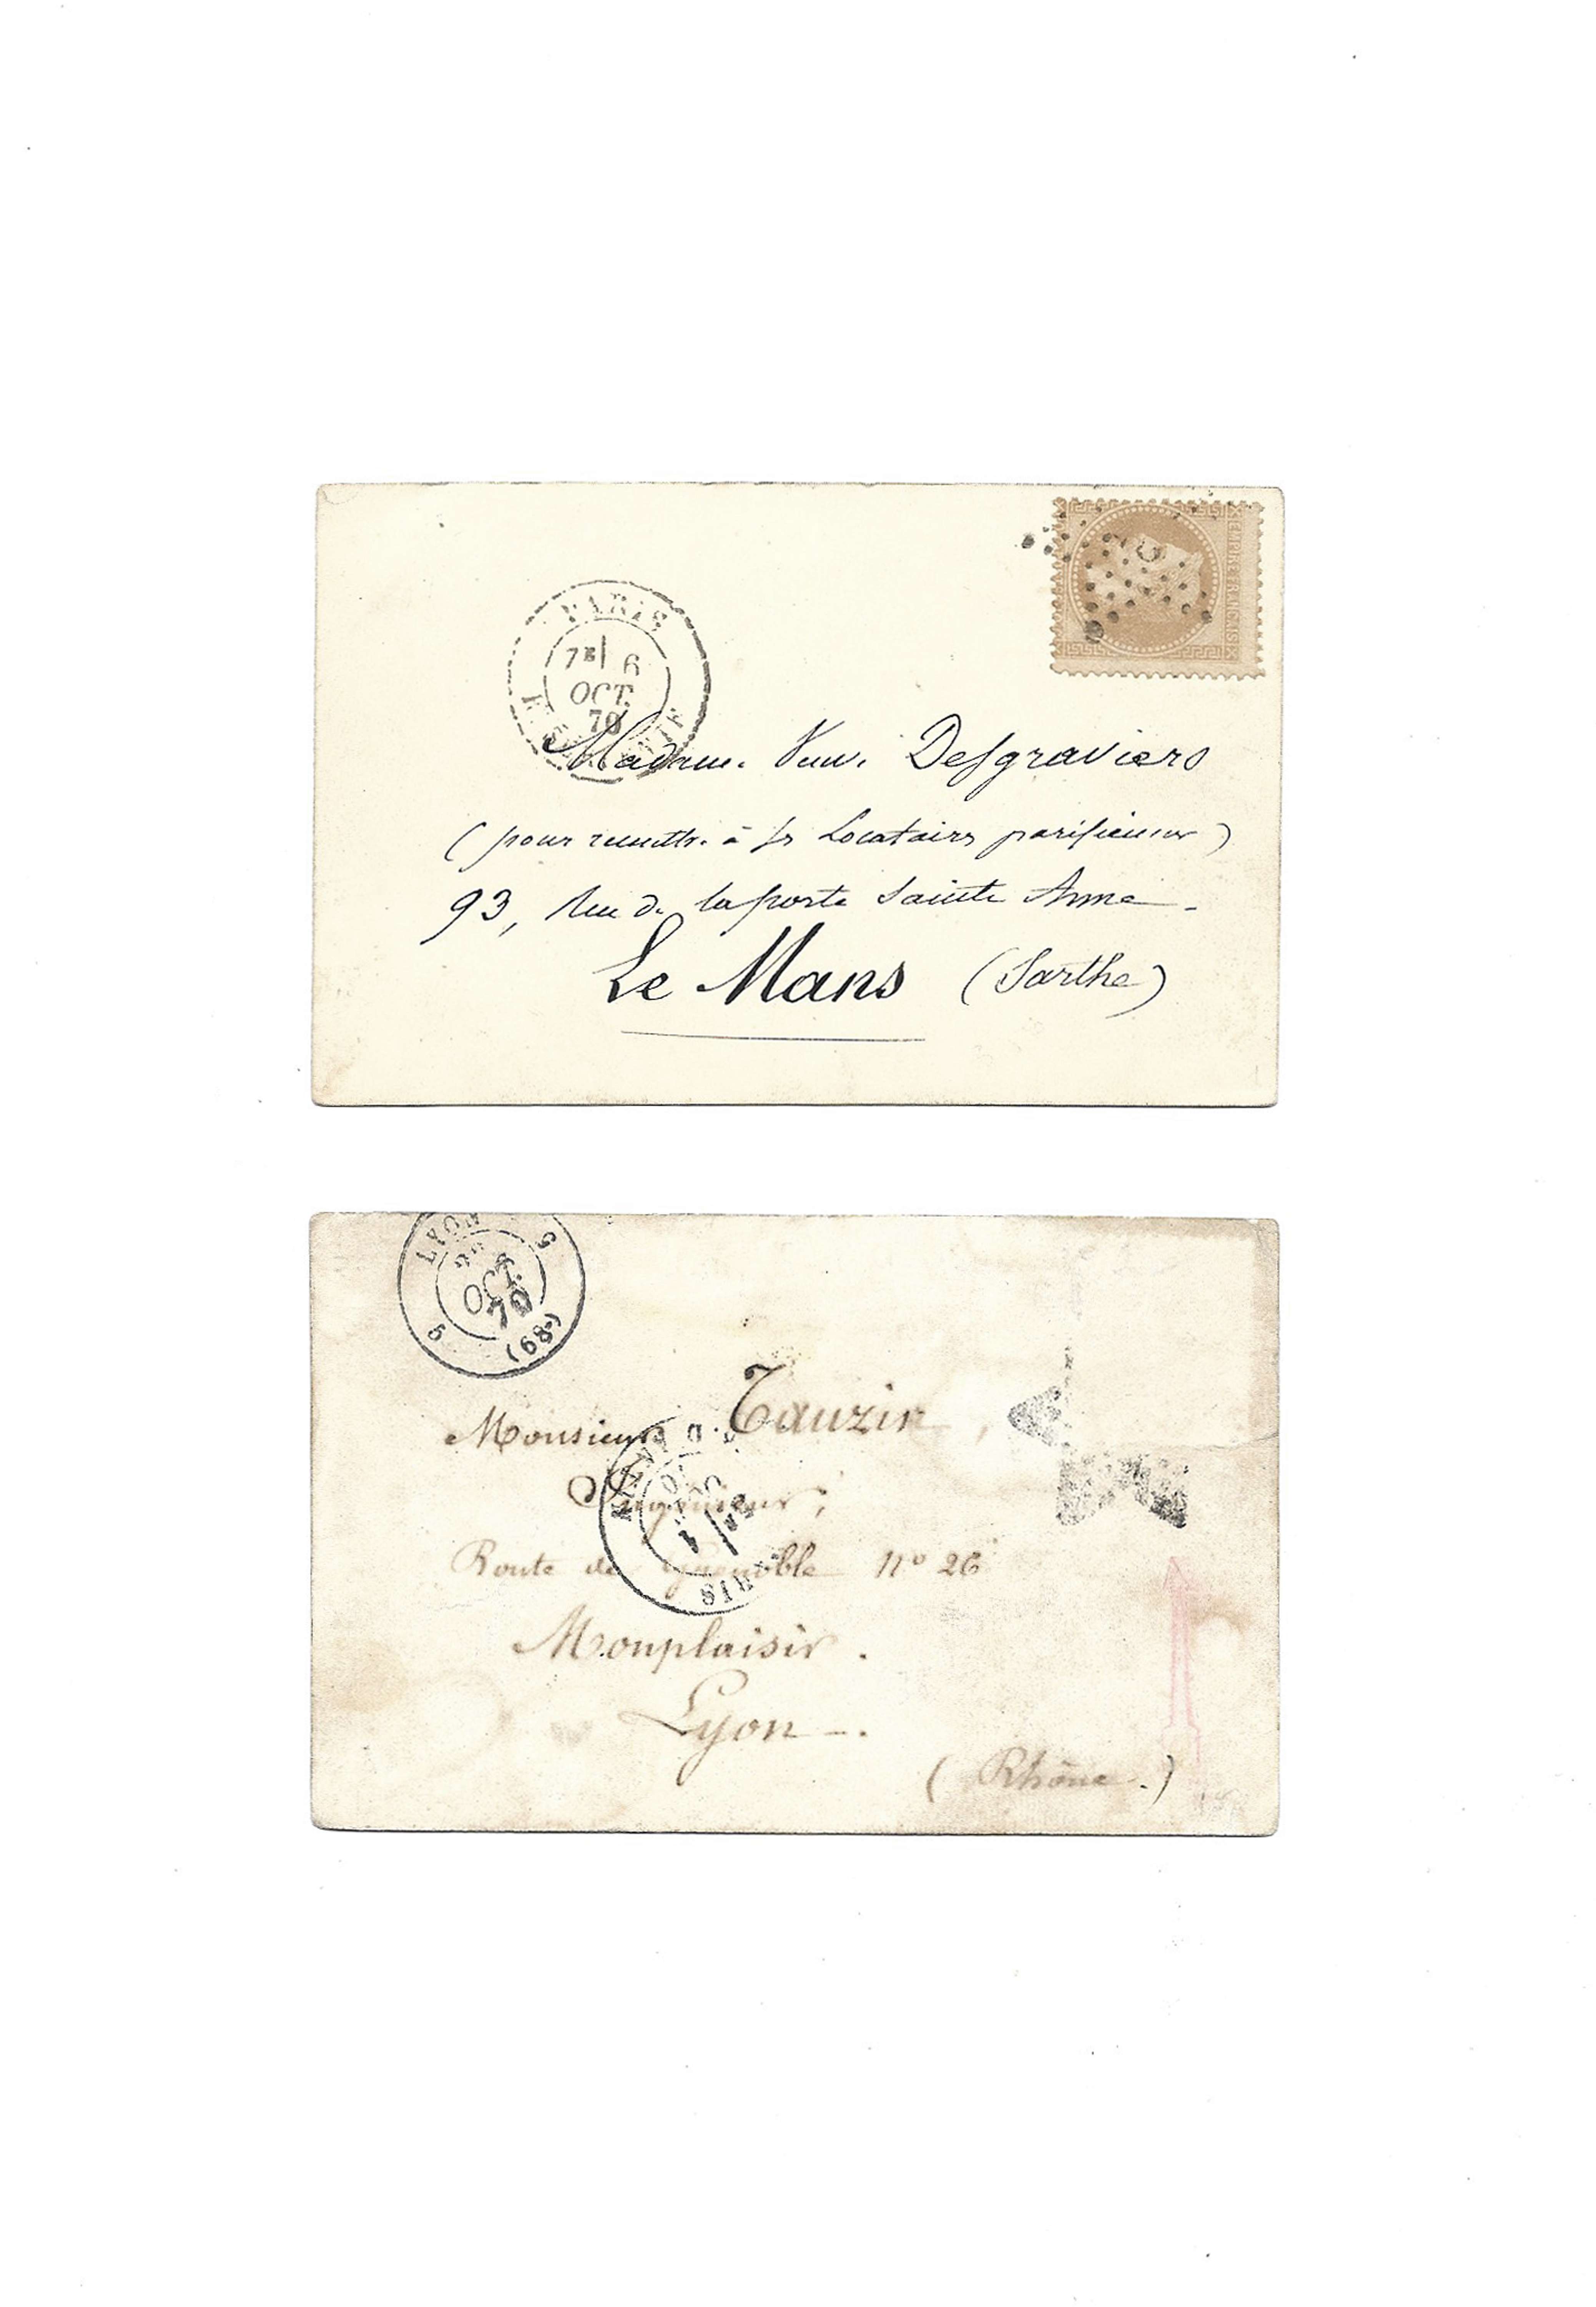 EMPIRE FRANÇAIS
PARIS
7E 6
OCT.
70
Madame Veuv. Desgraviers
(pour remettre à ses Locataires parisiennes)
93, Rue de la porte Sainte Anne -
Le Mans (Sarthe)
LYON
5 5
OCT.
70
(68)
Monsieur Tauzin,
Ingénieur,
Route de Grenoble n° 26
Monplaisir.
Lyon -.
(Rhône.)